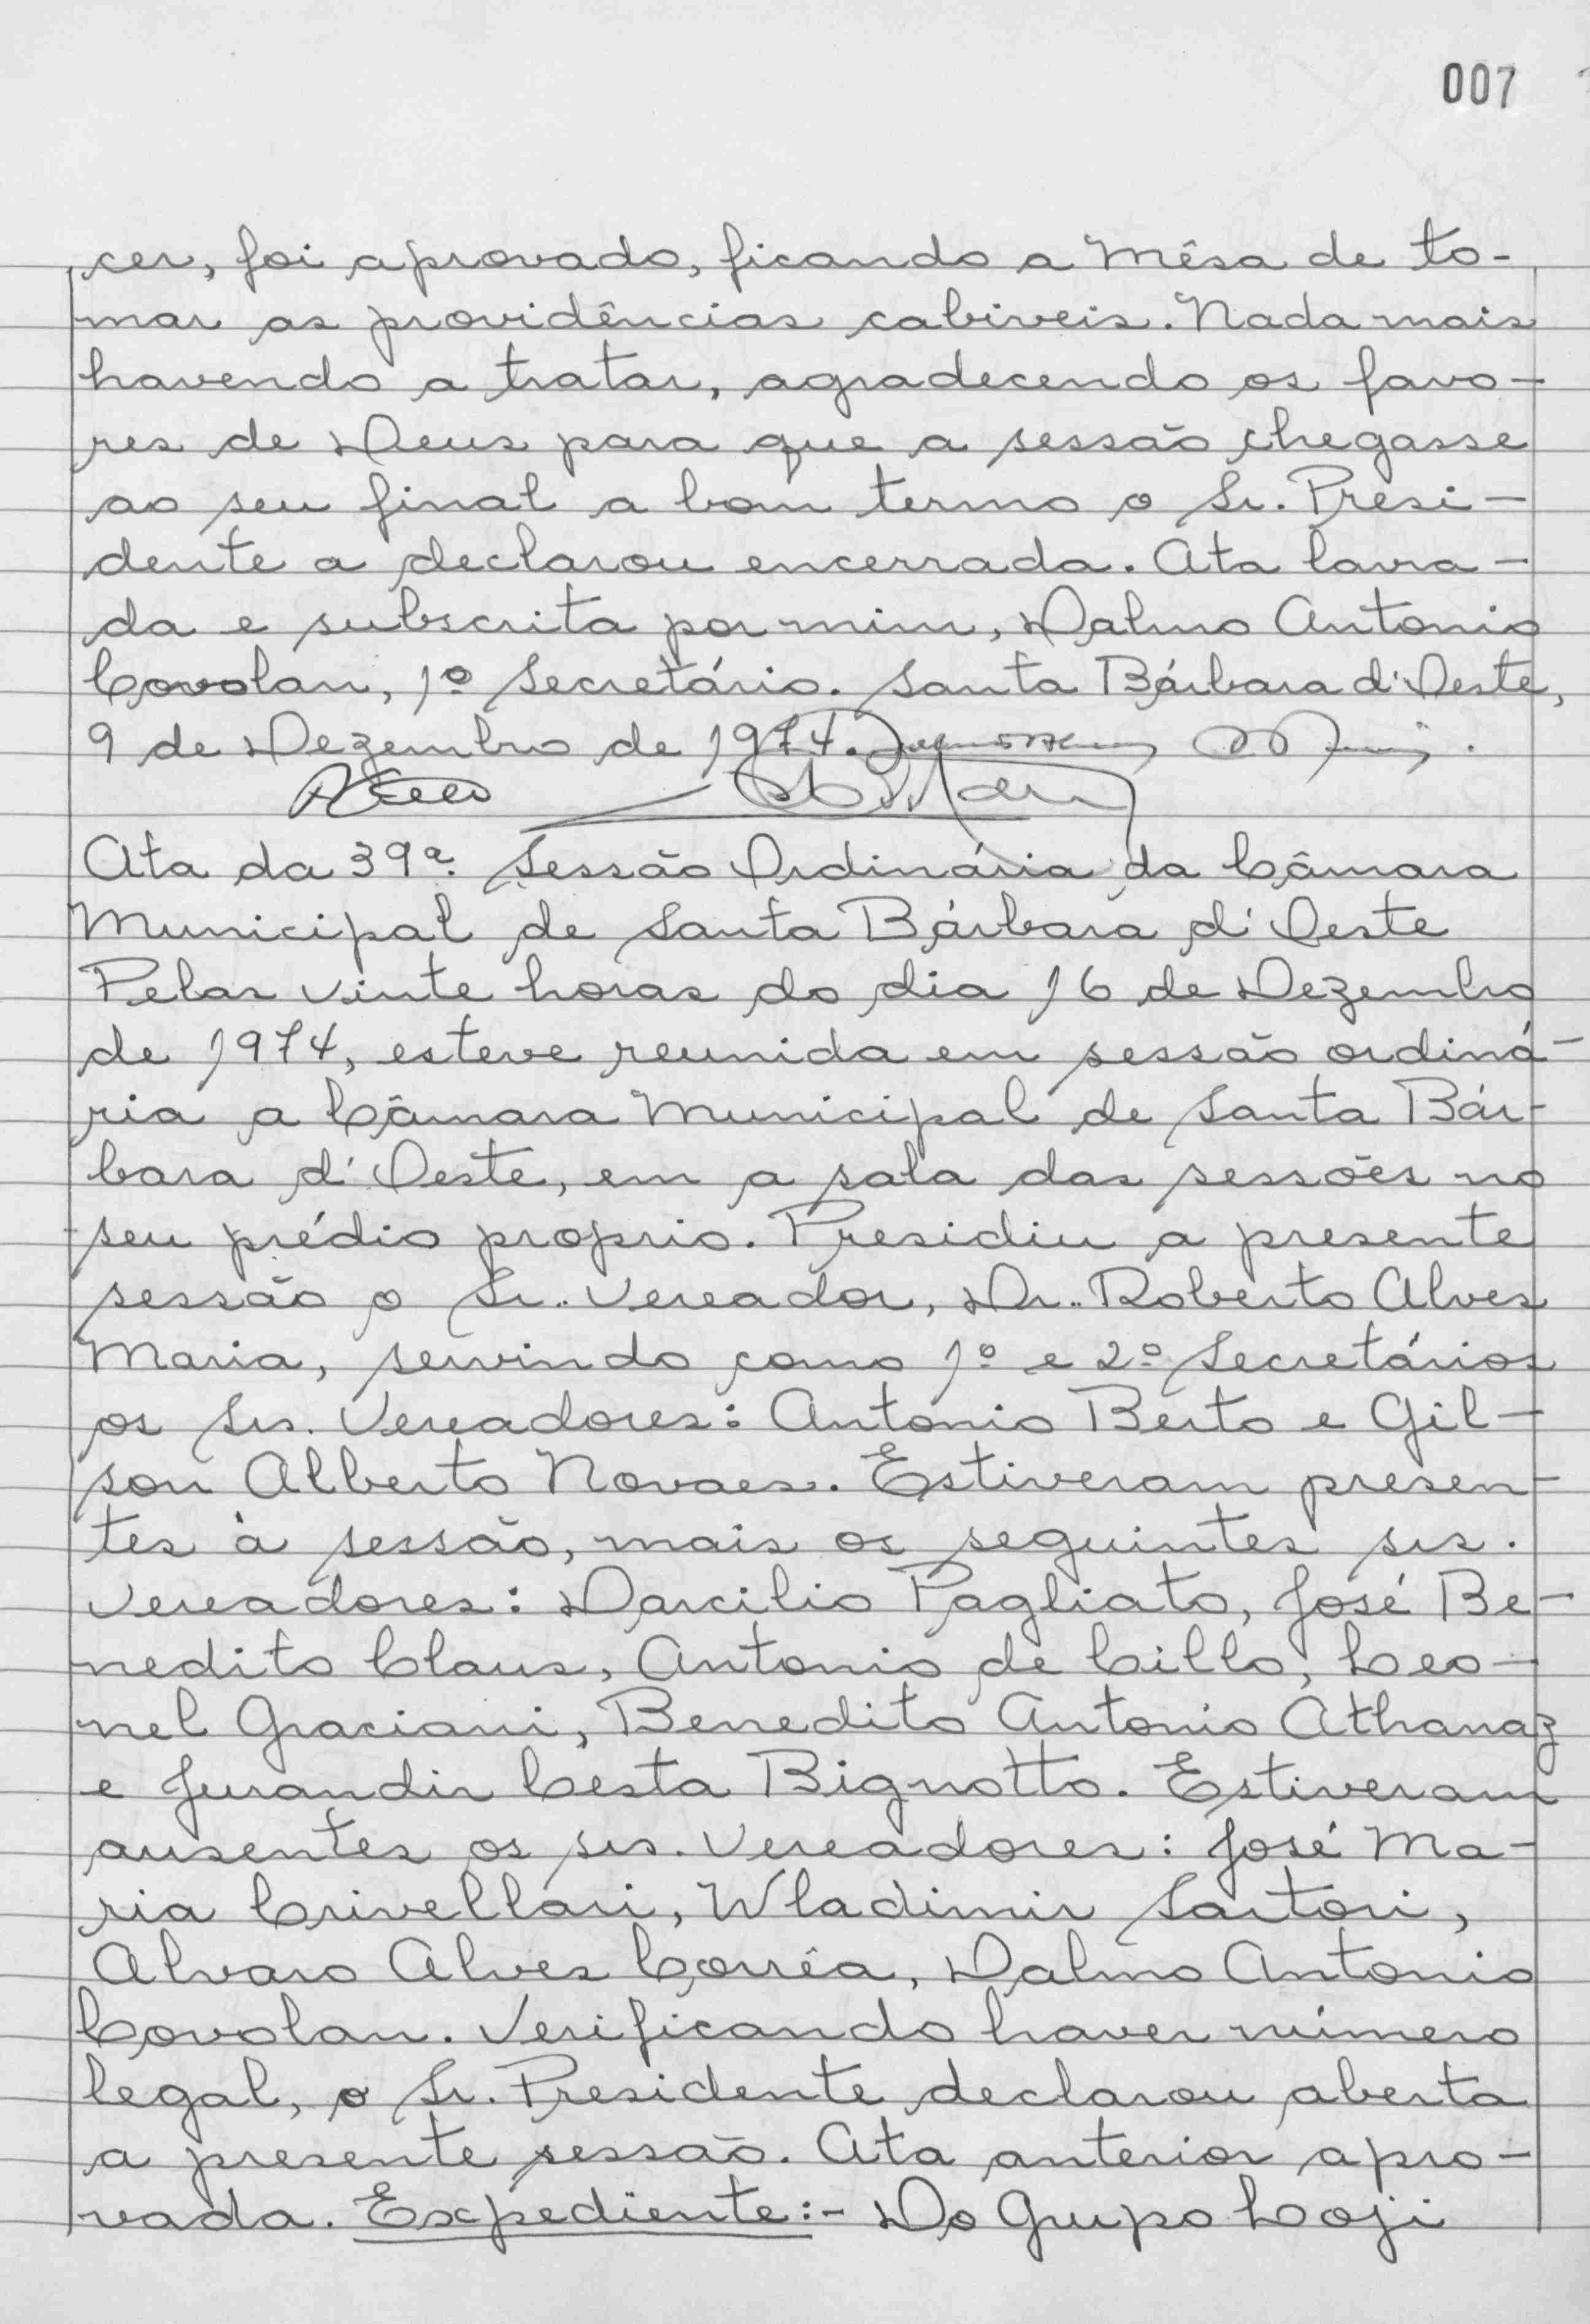 007
cer, foi aprovado, ficando a Mêsa de to-
mar as providências cabiveis. Nada mais
havendo a tratar, agradecendo os favo-
res de Deus para que a sessão chegasse
ao seu final a bom termo o Sr. Presi-
dente a declarou encerrada. Ata lavra-
da e subscrita por mim, Dalmo Antonio
Covolan, 1º Secretário. Santa Bárbara d'Oeste,
9 de Dezembro de 1974.
Ata da 39ª Sessão Ordinária da Câmara
Municipal de Santa Bárbara d'Oeste
Pelas vinte horas do dia 16 de Dezembro
de 1974, esteve reunida em sessão ordiná-
ria a Câmara Municipal de Santa Bár-
bara d'Oeste, em a sala das sessões no
seu prédio proprio. Presidiu a presente
sessão o Sr. Vereador, Dr. Roberto Alves
Maria, servindo como 1º e 2º Secretários
os Srs. Vereadores: Antonio Berto e Gil-
son Alberto Novaes. Estiveram presen-
tes à sessão, mais os seguintes srs.
Vereadores: Darcilio Pagliato, José Be-
nedito Claus, Antonio de Cillo, Leo-
nel Graciani, Benedito Antonio Athanaz
e Jurandir Cesta Bignotto. Estiveram
ausentes os srs. Vereadores: José Ma-
ria Crivellari, Wladimir Sartori,
Alvaro Alves Corrêa, Dalmo Antonio
Covolan. Verificando haver número
legal, o Sr. Presidente declarou aberta
a presente sessão. Ata anterior apro-
vada. Expediente:- Do Grupo Loji